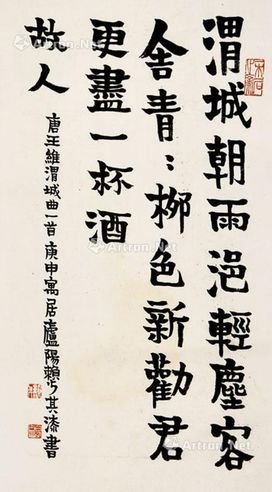 渭城朝雨浥輕塵客
舍青〻柳色新勸君
更盡一杯酒
故人
唐王維渭城曲一首庚申寓居廬陽賴少其漆書